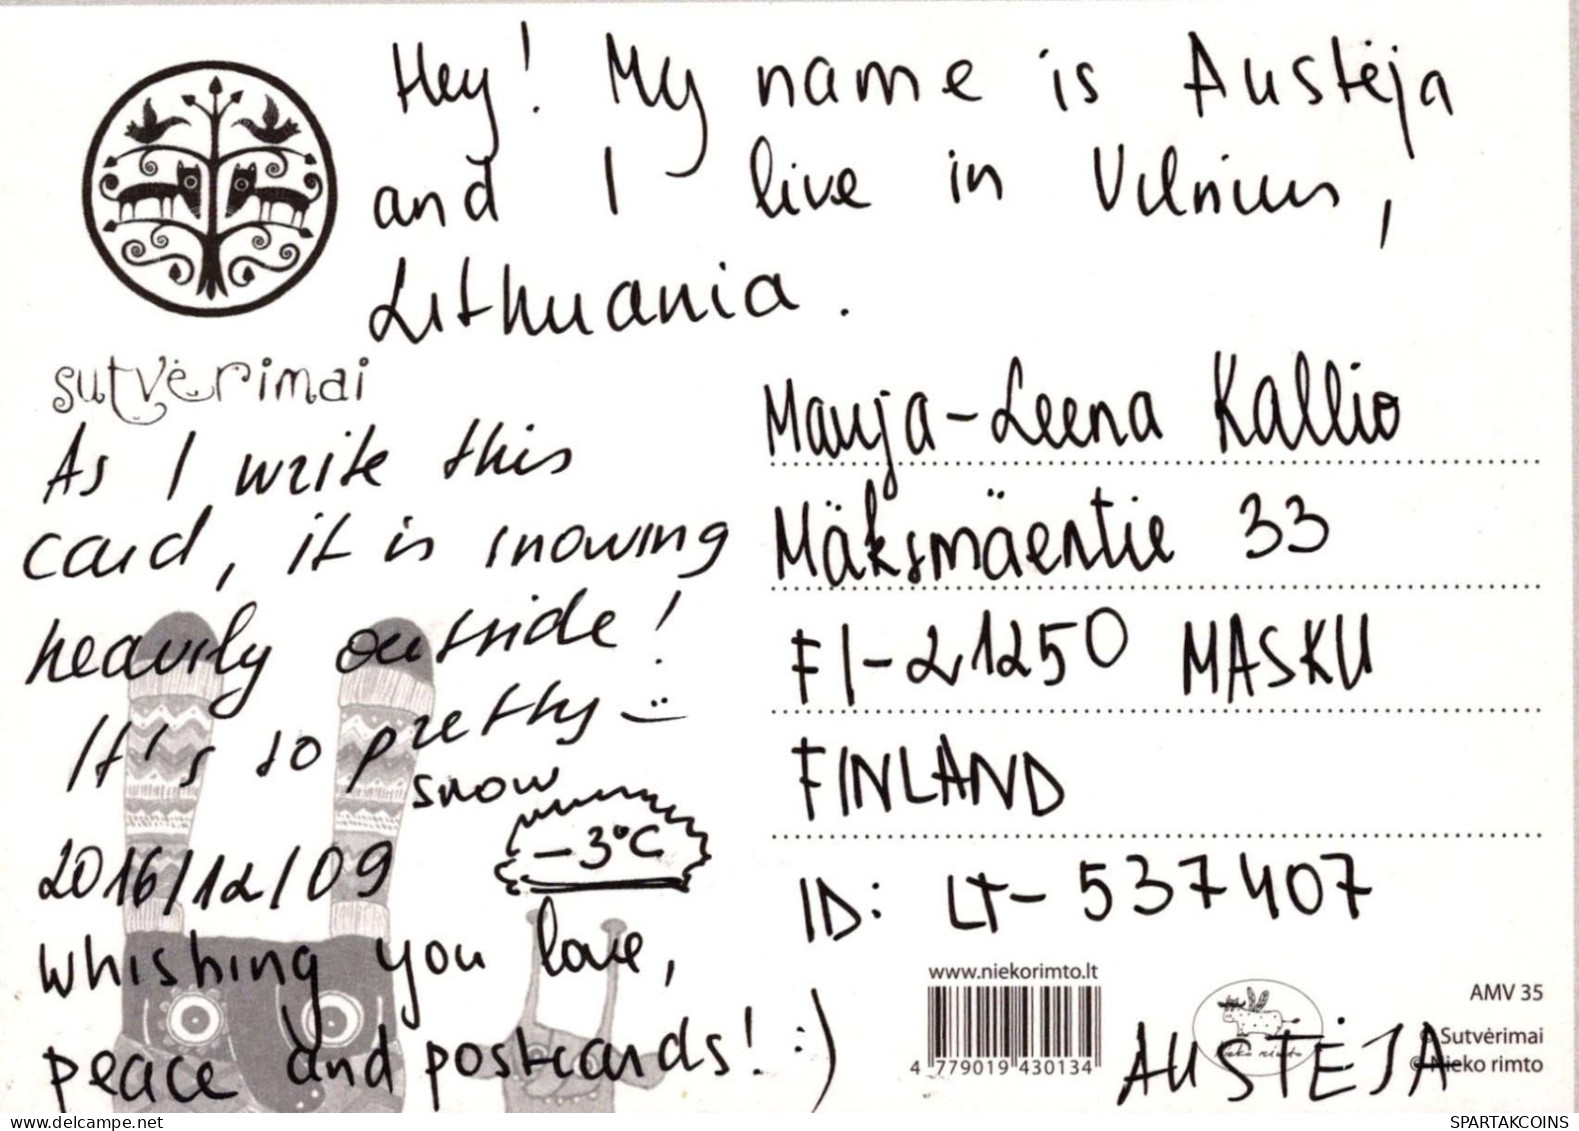 Hey! My name is Austėja
and I live in Vilnius,
Lithuania.
sutvėrimai
As I write this
card, it is snowing
heavily outside!
It's so pretty :)
snow
-3°C
2016/12/09
Whishing you love,
peace and postcards! :)
Marja-Leena Kallio
Mäksmäentie 33
FI-21250 MASKU
FINLAND
ID: LT-537407
www.niekorimto.lt
4 779019 430134
Nieko rimto
AMV 35
© Sutvėrimai
© Nieko rimto
AUSTĖJA
delcampe.net
SPARTAKCOINS